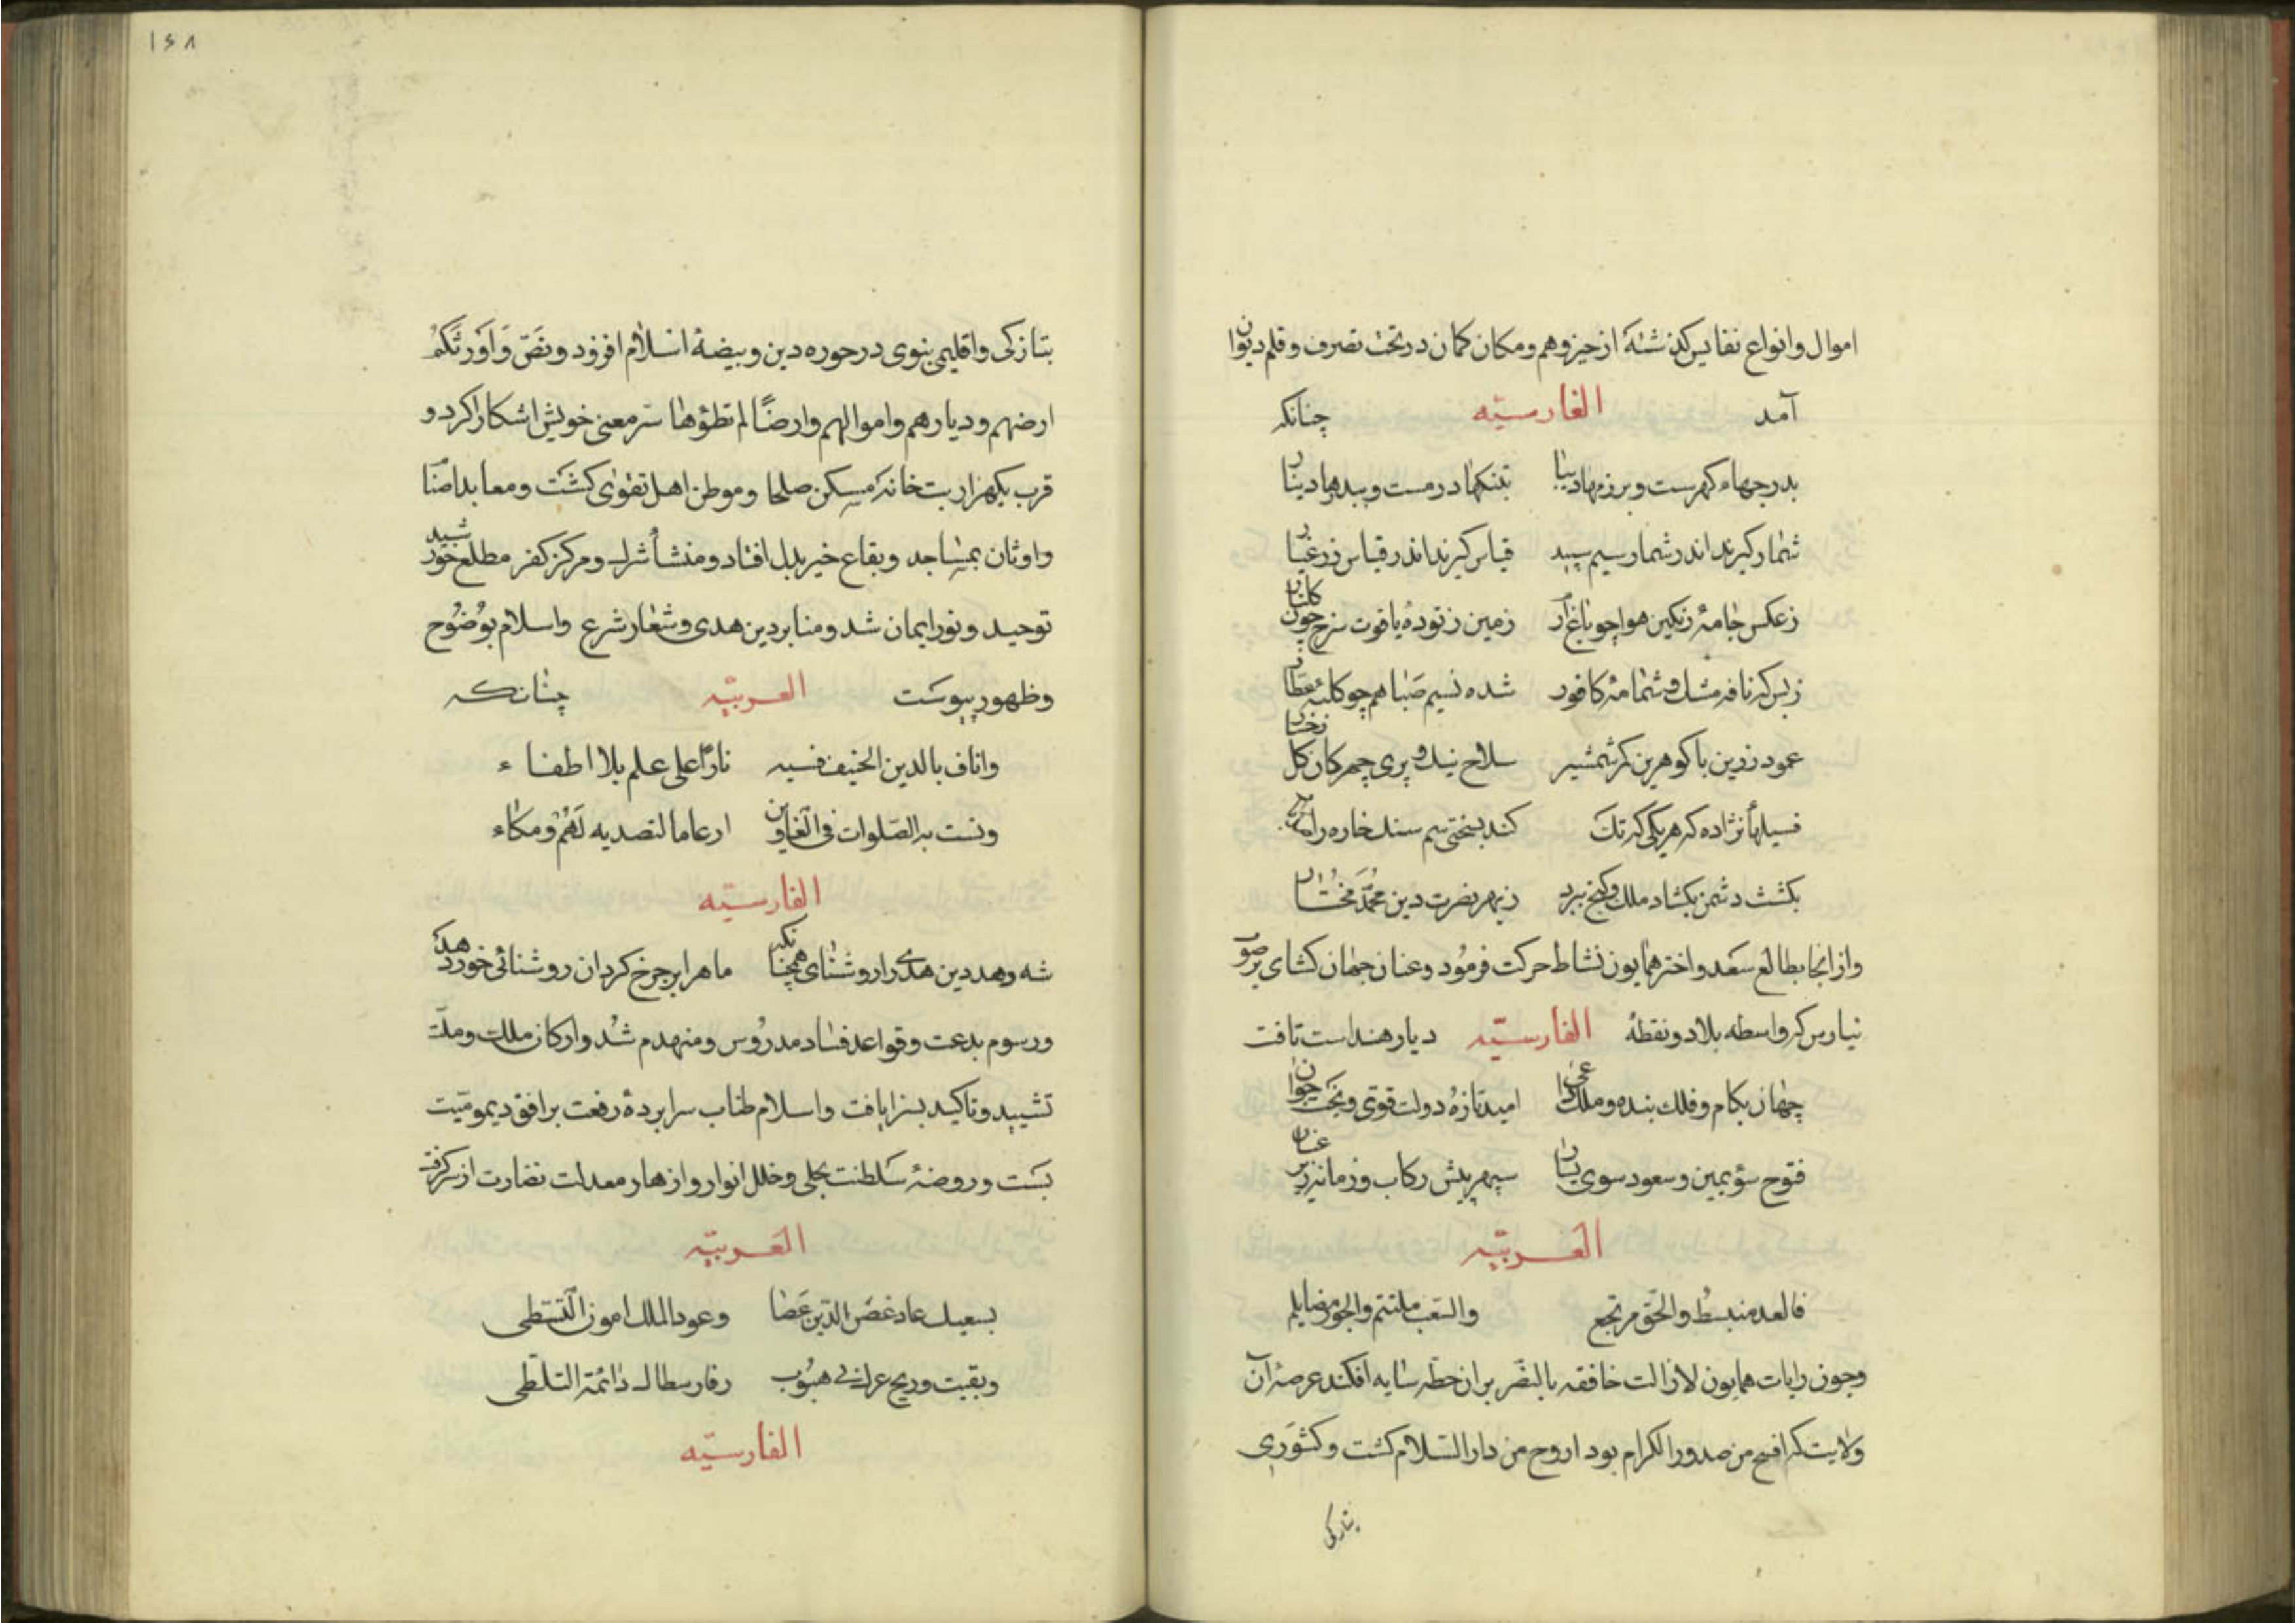 اموال و انواع نفایس کذشته از حیز وهم و مکان کمان در تحت تصرف و قلم دیوان
آمد الفارسیّه چنانکه
بدرجهاء کهرست و برزمها دیبا بتنکها درمست و ببدرها دینار
شمار کیرند اندر شمار سیم سپید قیاس کیرند اندر قیاس زر عیار
ز عکس جامۀ رنکین هوا چو باغ ارم زمین ز تودۀ یاقوت سرخ چون کلنار
ز بس که نافه مشک و شمامۀ کافور شده نسیم صبا هم چو کلبه عطار
عمود زرین با کوهرین کمر شمشیر سلاح نیک و پری چهرکان کل رخسار
فسیلها نژاده که هر یکی که تک کند بسختی سم سنک خاره را
بکشت دشمن بکشاد ملک و کنج ببرد ز بهر نصرت دین محمّد مختار
و از انجا بطالع سعد و اختر همایون نشاط حرکت فرمود و عنان جهان کشای بر صوب
که واسطه بلاد و نقطۀ الفارسیّه دیار هنداست تافت
جهان بکام و فلک بنده و ملک داعی امید تازه و دولت قوی و بخت جوان
فتوح سوی یمین و سعود سوی یسار سپهر پیش رکاب و زمانه زیر عنان
العربیّه
فالعدل منبسط والحق مرتجع والشعب ملتئم والجور
وچون رایات همایون لازالت خافقه بالنصر بران خطّه سایه افکند عرصۀ آن
ولایت که افسح من صدور الکرام بود اروح من دار السّلام کشت و کشوری
بتازکی
۱۶۸
بتازکی و اقلیمی بنوی در حوزه دین و بیضۀ اسلام افزود و نصّ وَاَورَثَکُمْ
ارضهم و دیارهم و اموالهم و ارضًا لم تطؤها سر معنی خویش اشکارا کرد و
قرب یکهزار بت خانه مسکن صلحا و موطن اهل تقوی کشت و معابد اصنام
و اوثان بمساجد و بقاع خیر بدل افتاد و منشأ شرک و مرکز کفر مطلع خورشید
توحید و نور ایمان شد و منابر دین هدی و شعار شرع و اسلام بوضوح
وظهور پیوست العربیّه چنانکه
واناف بالدین الحنیف نارًا علی علم بلا اطفاء
به الصّلوات فی ارغاما لتصدیه لهم ومکاء
الفارسیّه
شه دهد دین هدی را روشنای همچنانک ماه را بر چرخ کردان روشنائی خور دهد
و رسوم بدعت و قواعد فساد مدروس و منهدم شد و ارکان ملک و ملّت
تشیید و تاکید بسزا یافت و اسلام طناب سراپردۀ رفعت بر افق دیمومیّت
بست و روضۀ سلطنت بحلی و حلل انوار و ازهار معدلت نضارت از سر کرفت
العربیّه
بسعیک عاد غصن الدّین غضا وعود الملک
وبقیت وریح عزک فی هبوب دائمة التلظّی
الفارسیّه